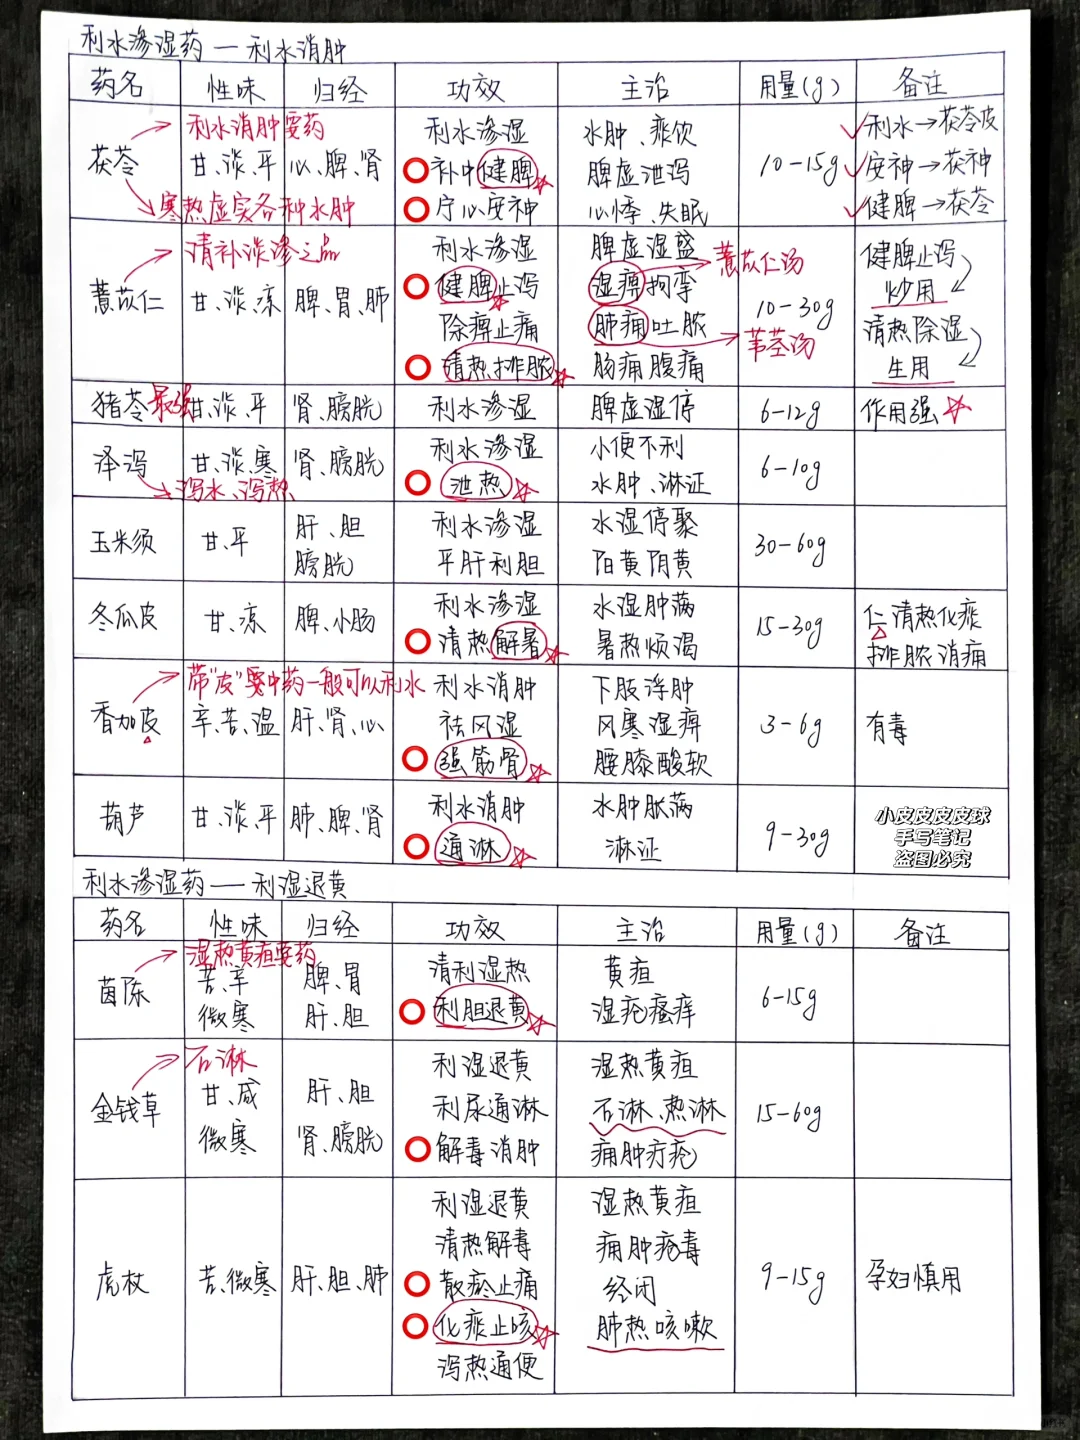 利水渗湿药 — 利水消肿
药名 性味 归经 功效 主治 用量(g) 备注
利水消肿要药
茯苓 甘、淡、平 心、脾、肾
寒热虚实各种水肿
利水渗湿
补中健脾
宁心安神
水肿、痰饮
脾虚泄泻
心悸、失眠
10-15g
利水→茯苓皮
安神→茯神
健脾→茯苓
清补淡渗之品
薏苡仁 甘、淡、凉 脾、胃、肺
利水渗湿
健脾止泻
除痹止痛
清热排脓
脾虚湿盛
湿痹拘挛
肺痈吐脓
肠痈腹痛
薏苡仁汤
10-30g
苇茎汤
健脾止泻
炒用
清热除湿
生用
猪苓 最强 甘、淡、平 肾、膀胱 利水渗湿 脾虚湿停 6-12g 作用强
泽泻 甘、淡、寒 肾、膀胱
泻水、泻热
利水渗湿
泄热
小便不利
水肿、淋证
6-10g
玉米须 甘、平
肝、胆
膀胱
利水渗湿
平肝利胆
水湿停聚
阳黄阴黄
30-60g
冬瓜皮 甘、凉 脾、小肠
利水渗湿
清热解暑
水湿肿满
暑热烦渴
15-30g
仁清热化痰
排脓消痈
带"皮"要中药一般可以利水
香加皮 辛、苦、温 肝、肾、心
利水消肿
祛风湿
强筋骨
下肢浮肿
风寒湿痹
腰膝酸软
3-6g 有毒
葫芦 甘、淡、平 肺、脾、肾
利水消肿
通淋
水肿胀满
淋证
9-30g
小皮皮皮皮球
手写笔记
盗图必究
利水渗湿药 — 利湿退黄
药名 性味 归经 功效 主治 用量(g) 备注
湿热黄疸要药
茵陈
苦、辛
微寒
脾、胃
肝、胆
清利湿热
利胆退黄
黄疸
湿疮瘙痒
6-15g
石淋
金钱草
甘、咸
微寒
肝、胆
肾、膀胱
利湿退黄
利尿通淋
解毒消肿
湿热黄疸
石淋、热淋
痈肿疔疮
15-60g
虎杖 苦、微寒 肝、胆、肺
利湿退黄
清热解毒
散瘀止痛
化痰止咳
泻热通便
湿热黄疸
痈肿疮毒
经闭
肺热咳嗽
9-15g 孕妇慎用